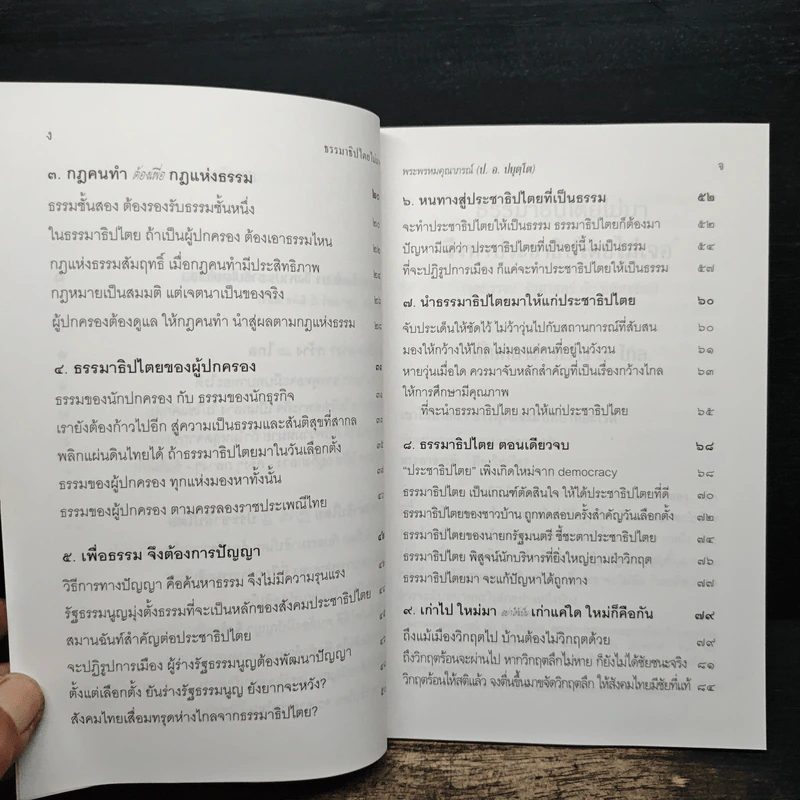 ง
ธรรมาธิปไตยไม่มา
๓. กฎคนทำ ต้องเพื่อ กฎแห่งธรรม
ธรรมชั้นสอง ต้องรองรับธรรมชั้นหนึ่ง
ในธรรมาธิปไตย ถ้าเป็นผู้ปกครอง ต้องเอาธรรมไหน
กฎแห่งธรรมสัมฤทธิ์ เมื่อกฎคนทำมีประสิทธิภาพ
กฎหมายเป็นสมมติ แต่เจตนาเป็นของจริง
ผู้ปกครองต้องดูแล ให้กฎคนทำ นำสู่ผลตามกฎแห่งธรรม
๔. ธรรมาธิปไตยของผู้ปกครอง
ธรรมของนักปกครอง กับ ธรรมของนักธุรกิจ
เรายังต้องก้าวไปอีก สู่ความเป็นธรรมและสันติสุขที่สากล
พลิกแผ่นดินไทยได้ ถ้าธรรมาธิปไตยมาในวันเลือกตั้ง
ธรรมของผู้ปกครอง ทุกแห่งมองหาทั้งนั้น
ธรรมของผู้ปกครอง ตามครรลองราชประเพณีไทย
๕. เพื่อธรรม จึงต้องการปัญญา
วิธีการทางปัญญา คือค้นหาธรรม จึงไม่มีความรุนแรง
รัฐธรรมนูญมุ่งตั้งธรรมที่จะเป็นหลักของสังคมประชาธิปไตย
สมานฉันท์สำคัญต่อประชาธิปไตย
จะปฏิรูปการเมือง ผู้ร่างรัฐธรรมนูญต้องพัฒนาปัญญา
ตั้งแต่เลือกตั้ง ยันร่างรัฐธรรมนูญ ยังยากจะหวัง?
สังคมไทยเสื่อมทรุดห่างไกลจากธรรมาธิปไตย?
พระพรหมคุณาภรณ์ (ป. อ. ปยุตฺโต) จ
๖. หนทางสู่ประชาธิปไตยที่เป็นธรรม ๕๒
จะทำประชาธิปไตยให้เป็นธรรม ธรรมาธิปไตยก็ต้องมา ๕๒
ปัญหามีแค่ว่า ประชาธิปไตยที่เป็นอยู่นี้ ไม่เป็นธรรม ๕๔
ที่จะปฏิรูปการเมือง ก็แค่จะทำประชาธิปไตยให้เป็นธรรม ๕๗
๗. นำธรรมาธิปไตยมาให้แก่ประชาธิปไตย ๖๐
จับประเด็นให้ชัดไว้ ไม่ว้าวุ่นไปกับสถานการณ์ที่สับสน ๖๐
มองให้กว้างให้ไกล ไม่มองแค่คนที่อยู่ในวังวน ๖๑
หายวุ่นเมื่อใด ควรมาจับหลักสำคัญที่เป็นเรื่องกว้างไกล ๖๓
ให้การศึกษามีคุณภาพ
ที่จะนำธรรมาธิปไตย มาให้แก่ประชาธิปไตย ๖๕
๘. ธรรมาธิปไตย ตอนเดียวจบ ๖๘
"ประชาธิปไตย" เพิ่งเกิดใหม่จาก democracy ๖๘
ธรรมาธิปไตย เป็นเกณฑ์ตัดสินใจ ให้ได้ประชาธิปไตยที่ดี ๗๐
ธรรมาธิปไตยของชาวบ้าน ถูกทดสอบครั้งสำคัญวันเลือกตั้ง ๗๒
ธรรมาธิปไตยของนายกรัฐมนตรี ชี้ชะตาประชาธิปไตย ๗๔
ธรรมาธิปไตย พิสูจน์นักบริหารที่ยิ่งใหญ่ยามฝ่าวิกฤต ๗๖
ธรรมาธิปไตยมา จะแก้ปัญหาได้ถูกทาง ๗๗
๙. เก่าไป ใหม่มา เก่าแค่ใด ใหม่ก็คือกัน ๗๙
ถึงแม้เมืองวิกฤตไป บ้านต้องไม่วิกฤตด้วย ๗๙
ถึงวิกฤตร้อนจะผ่านไป หากวิกฤตลึกไม่หาย ก็ยังไม่ได้ชัยชนะจริง ๘๑
วิกฤตร้อนให้สติแล้ว จงตื่นขึ้นมาขจัดวิกฤตลึก ให้สังคมไทยมีชัยที่แท้ ๘๔